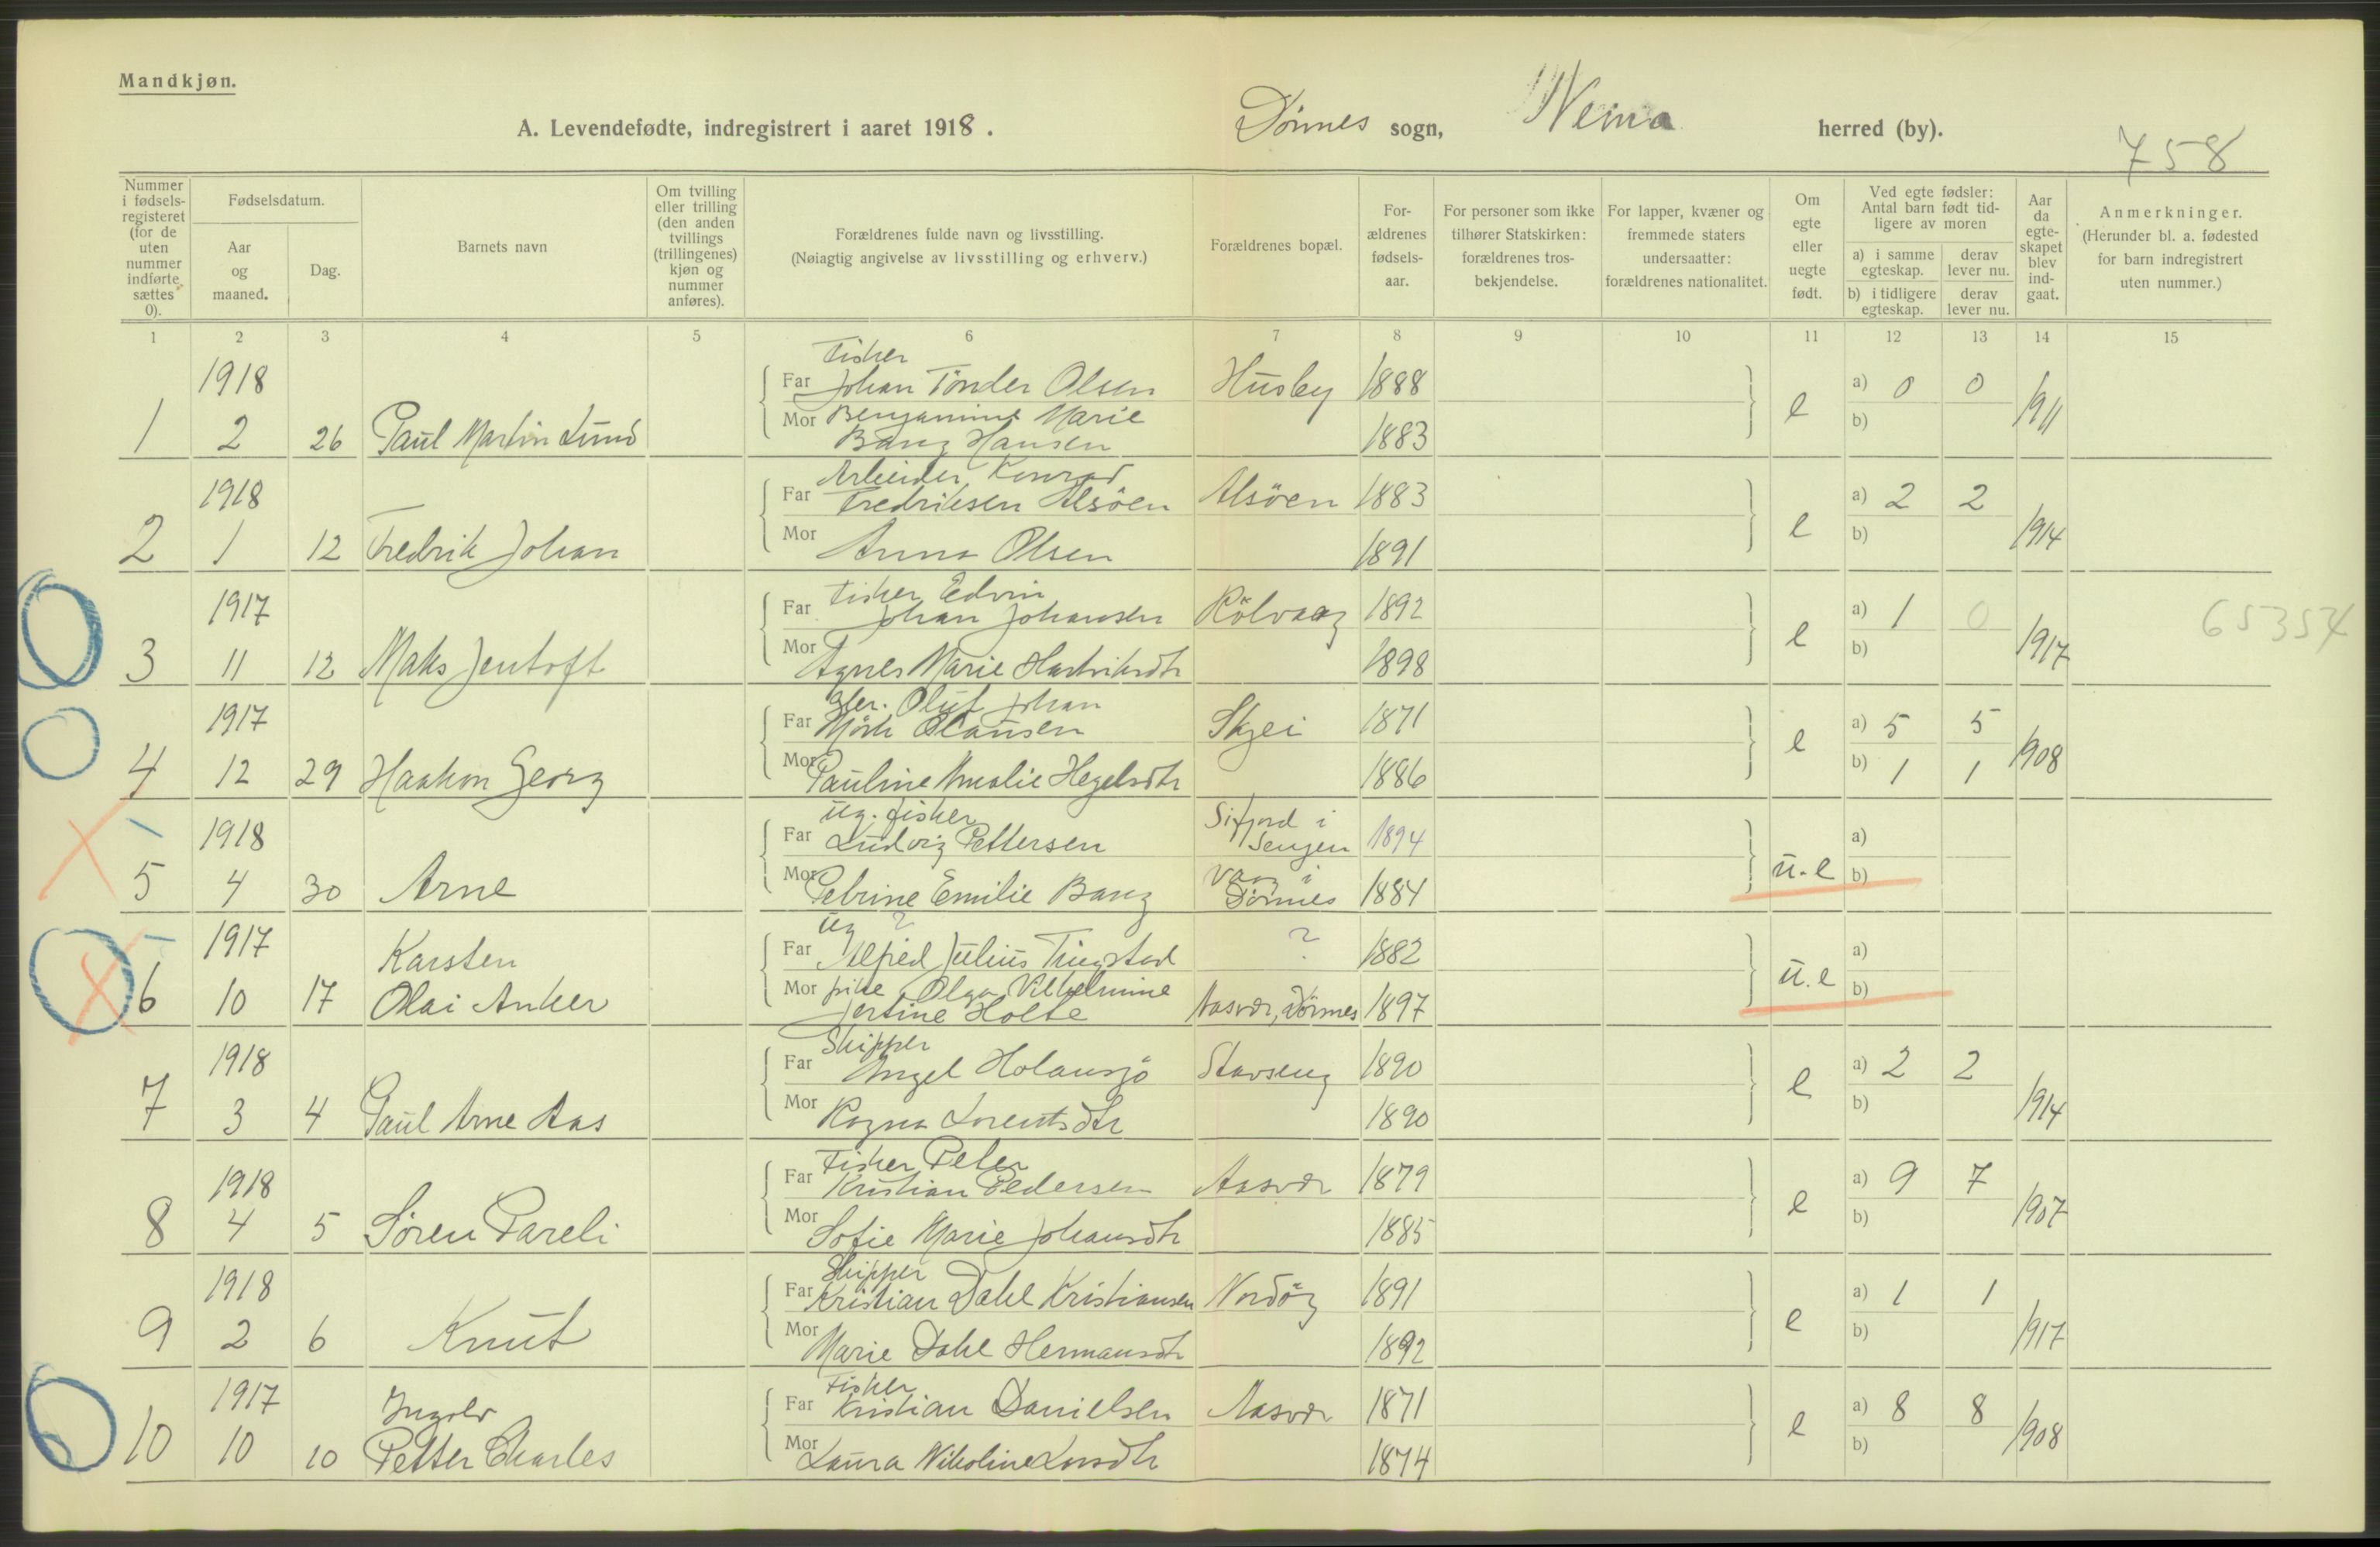 Mandkjøn.
A. Levendefødte, indregistrert i aaret 1918. Dønnes sogn, herred (by).
758
Nummer i fødselsregisteret (for de uten nummer indførte sættes 0).
Fødselsdatum.
Aar og maaned.
Dag.
Barnets navn
Om tvilling eller trilling (den anden tvillings (trillingenes) kjøn og nummer anføres).
Forældrenes fulde navn og livsstilling.
(Nøiagtig angivelse av livsstilling og erhverv.)
Forældrenes bopæl.
Forældrenes fødselsaar.
For personer som ikke tilhører Statskirken: forældrenes trosbekjendelse.
For lapper, kvæner og fremmede staters undersaatter: forældrenes nationalitet.
Om egte eller uegte født.
Ved egte fødsler: Antal barn født tidligere av moren
a) i samme egteskap.
derav lever nu.
b) i tidligere egteskap.
derav lever nu.
Aar da egteskapet blev indgaat.
Anmerkninger.
(Herunder bl. a. fødested for barn indregistrert uten nummer.)
1 2 3 4 5 6 7 8 9 10 11 12 13 14 15
Fisker
1918 Far Johan Tønder Olsen Husby 1888 a) 0 0
1 2 26 Paul Martin Lund Mor Benjamine Marie e b) 1911
Bang Hansen 1883
Arbeider, Konrad
1918 Far Fredriksen Alsöen Alsöen 1883 a) 2 2
2 1 12 Fredrik Johan Mor Anna Olsen 1891 e b) 1914
Fisker Edvin
1917 Far Johan Johansen Rölvaag 1892 a) 1 0 65354
3 11 12 Maks Jentoft Mor Agnes Marie Hartviksdtr 1898 e b) 1917
Oluf Johan
1917 Far Mörk Olausen Skjei 1871 a) 5 5
4 12 29 Haakon Georg Mor Pauline Amalie Hegelsdtr 1886 e b) 1 1 1908
ug. fisker Sifjord i
1918 Far Ludvig Pettersen Senjen 1894 a)
5 4 30 Arne Mor Petrine Emilie Bang Vaag i Dönnes 1884 u.e b)
ug ?
1917 Karsten Far Alfred Julius Tingstad ? 1882 a)
6 10 17 Olai Anker Mor pike Olga Vilhelmine u.e b)
Jertine Holte Aasvær, Dönnes 1897
Skipper
1918 Far Angel Holansjö Stavseng 1890 a) 2 2
7 3 4 Paul Arne Aas Mor Ragna Lorentsdtr 1890 e b) 1914
Fisker Peter
1918 Far Kristian Pedersen Aasvær 1879 a) 9 7
8 4 5 Sören Pareli Mor Sofie Marie Johansdtr 1885 e b) 1907
Skipper
1918 Far Kristian Dahl Kristiansen Nordöy 1891 a) 1 1
9 2 6 Knut Mor Marie Dahl Hermansdtr 1892 e b) 1917
Fisker
1917 Ingolv Far Kristian Danielsen Aasvær 1871 a) 8 8
10 10 10 Petter Charles Mor Laura Nikoline Larsdtr 1874 e b) 1908